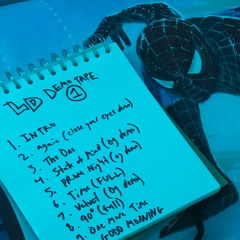 LD DEMO TAPE
1
1. INTRO
2. again (close your eyes demo)
3. The One
4. State of Mind (og demo)
5. Dream Night (og demo)
6. Time (FULL)
7. Velvet (og demo)
8. 90° (Full)
9. One more Time
GOOD MORNING